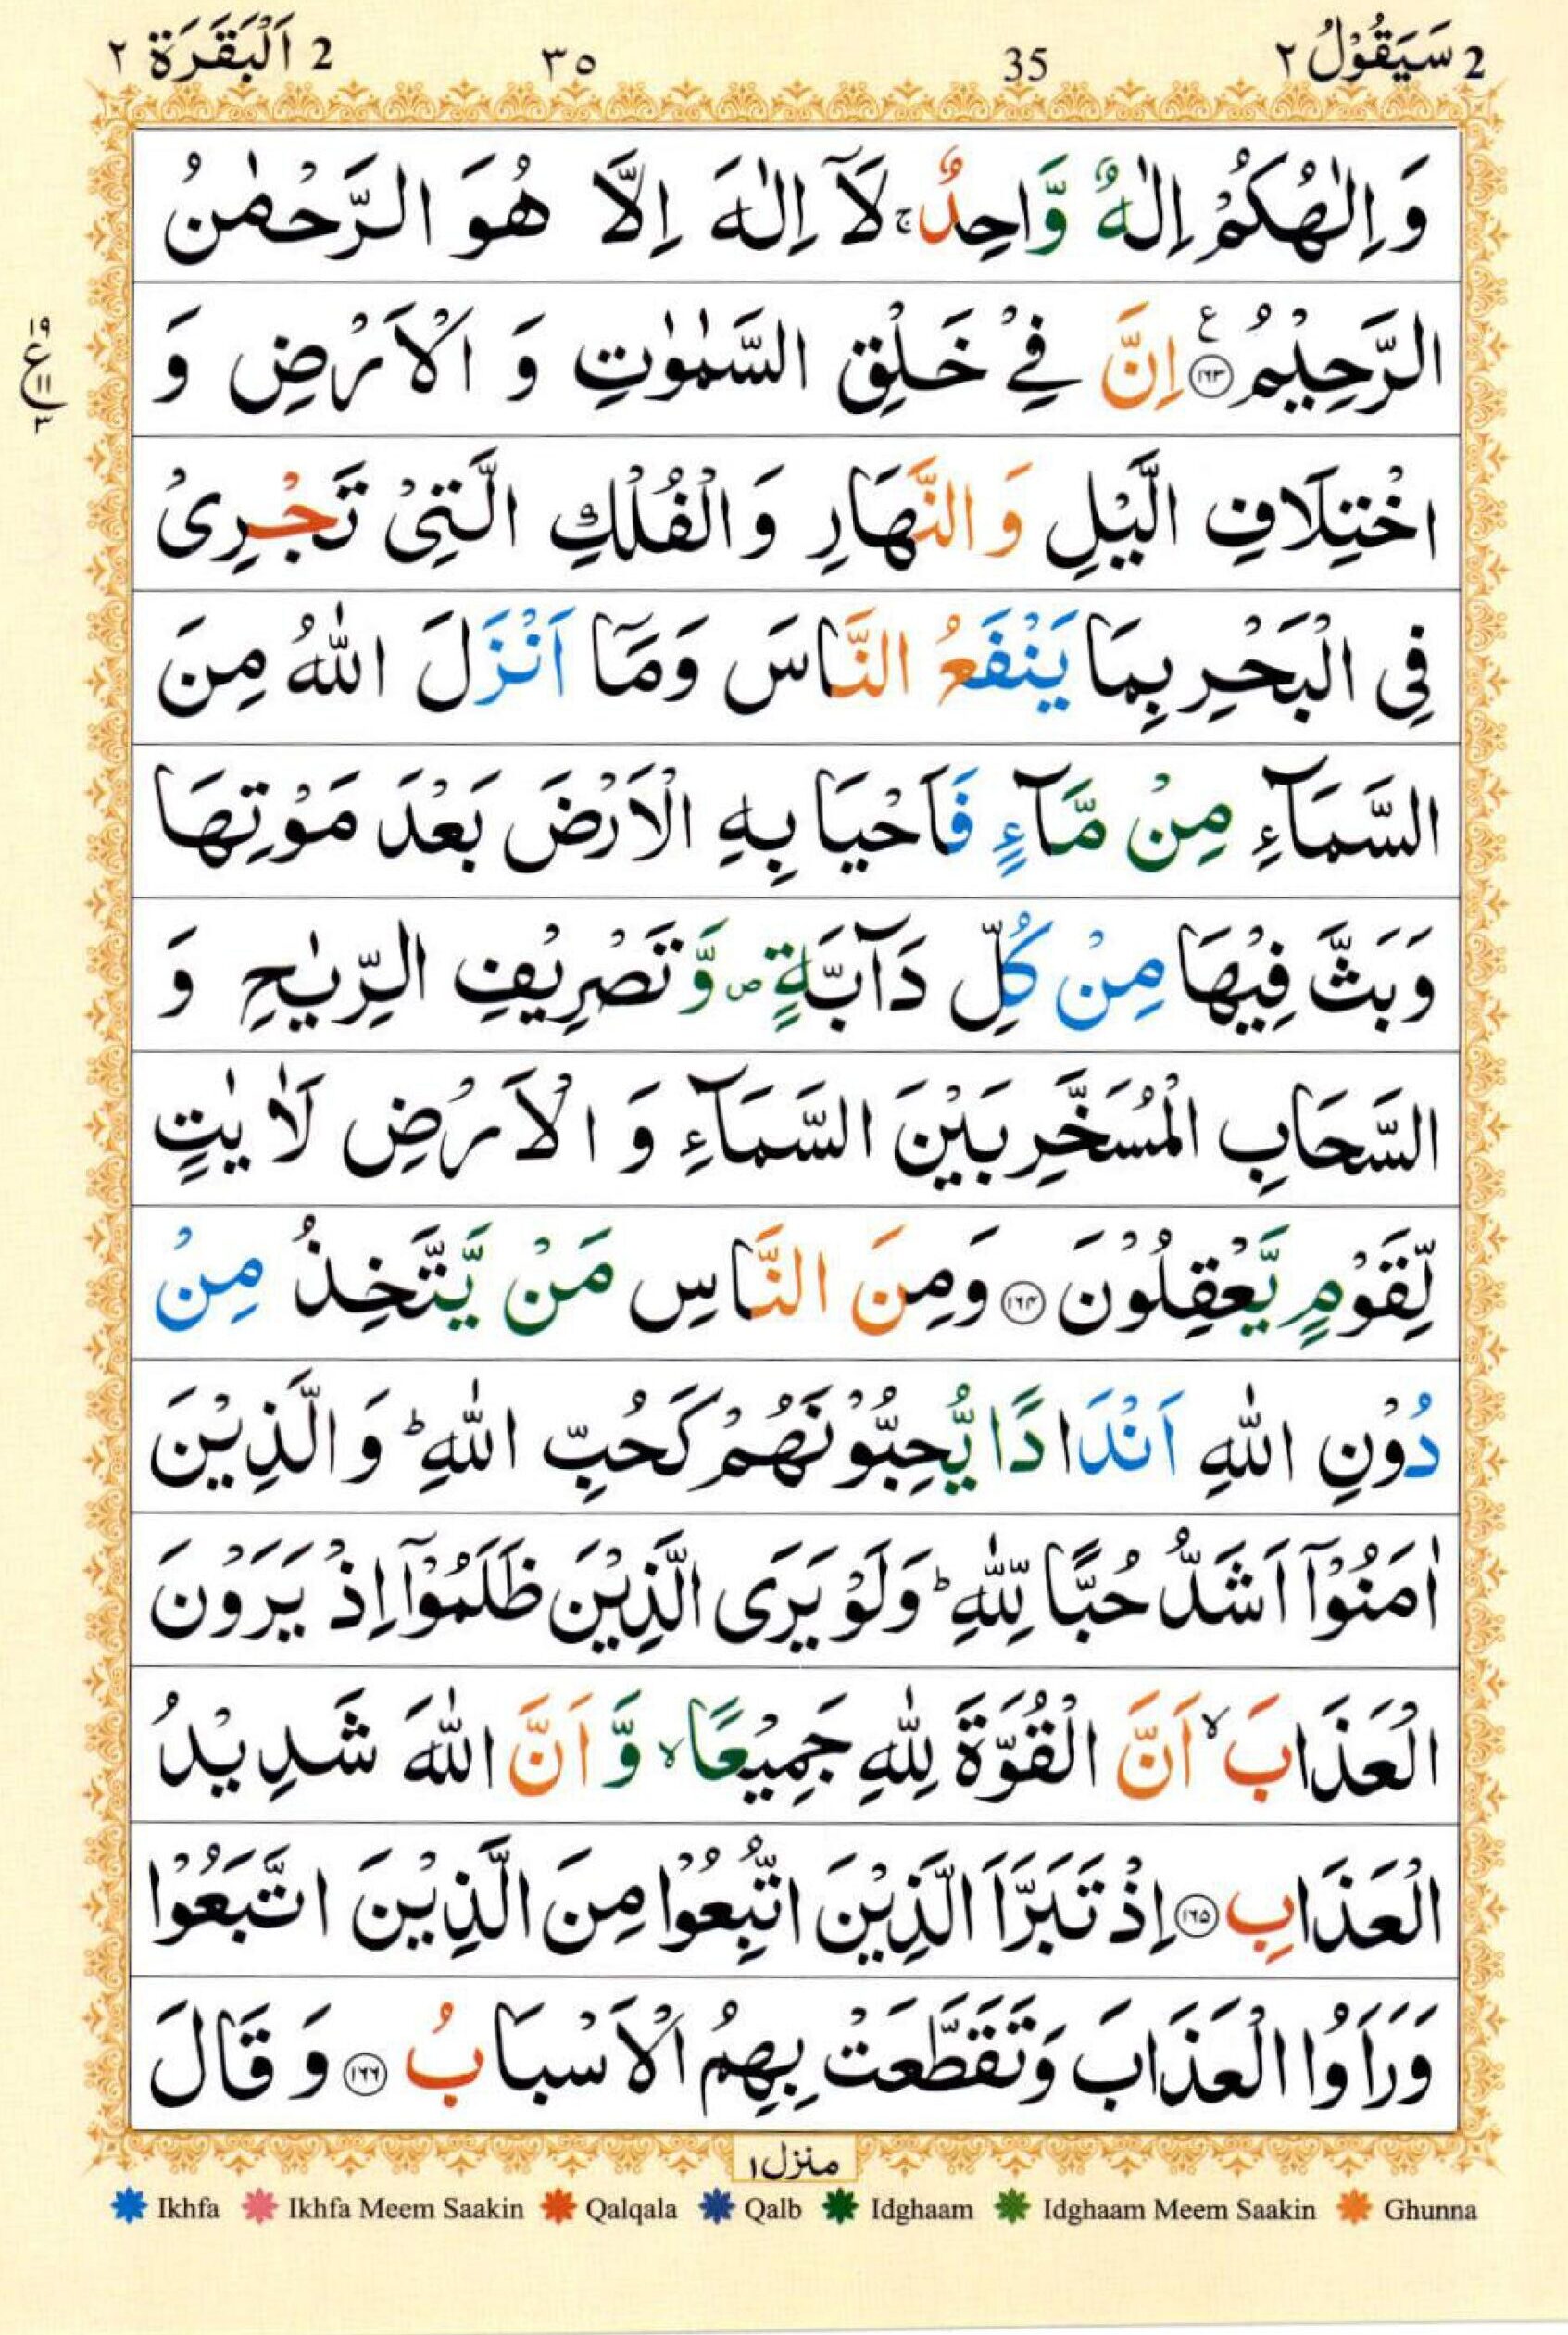 2 سَيَقُوْلُ ٢ 35 ٣٥ 2 اَلْبَقَرَة ٢
وَ اِلٰـهُكُمْ اِلٰهٌ وَّاحِدٌ ۚ لَآ اِلٰهَ اِلَّا هُوَ الرَّحْمٰنُ
الرَّحِيْمُ ﴿١٦٣﴾ ع اِنَّ فِيْ خَلْقِ السَّمٰوٰتِ وَ الْاَرْضِ وَ
١٩
ع
١١
٣
اخْتِلَافِ الَّيْلِ وَ النَّهَارِ وَ الْفُلْكِ الَّتِيْ تَجْرِىْ
فِى الْبَحْرِ بِمَا يَنْفَعُ النَّاسَ وَمَآ اَنْزَلَ اللّٰهُ مِنَ
السَّمَآءِ مِنْ مَّآءٍ فَاَحْيَا بِهِ الْاَرْضَ بَعْدَ مَوْتِهَا
وَبَثَّ فِيْهَا مِنْ كُلِّ دَآبَّةٍ ۪ وَّ تَصْرِيْفِ الرِّيٰحِ وَ
السَّحَابِ الْمُسَخَّرِ بَيْنَ السَّمَآءِ وَ الْاَرْضِ لَاٰيٰتٍ
لِّقَوْمٍ يَّعْقِلُوْنَ ﴿١٦٤﴾ وَمِنَ النَّاسِ مَنْ يَّتَّخِذُ مِنْ
دُوْنِ اللّٰهِ اَنْدَادًا يُّحِبُّوْنَهُمْ كَحُبِّ اللّٰهِ ؕ وَ الَّذِيْنَ
اٰمَنُوْٓا اَشَدُّ حُبًّا لِّلّٰهِ ؕ وَلَوْ يَرَى الَّذِيْنَ ظَلَمُوْٓا اِذْ يَرَوْنَ
الْعَذَابَ ۙ اَنَّ الْقُوَّةَ لِلّٰهِ جَمِيْعًا ۙ وَّ اَنَّ اللّٰهَ شَدِيْدُ
الْعَذَابِ ﴿١٦٥﴾ اِذْ تَبَرَّاَ الَّذِيْنَ اتُّبِعُوْا مِنَ الَّذِيْنَ اتَّبَعُوْا
وَرَاَوُا الْعَذَابَ وَتَقَطَّعَتْ بِهِمُ الْاَسْبَابُ ﴿١٦٦﴾ وَ قَالَ
منزل ١
Ikhfa Ikhfa Meem Saakin Qalqala Qalb Idghaam Idghaam Meem Saakin Ghunna